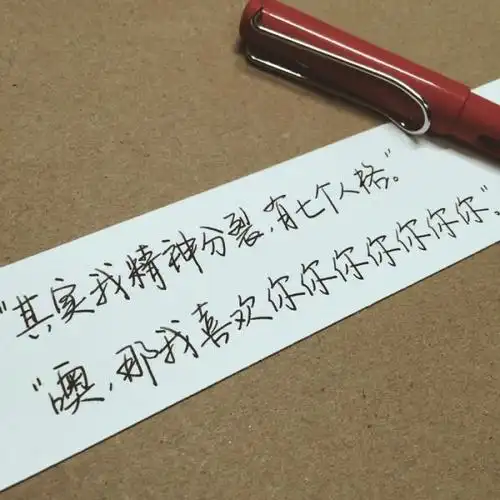 “其实我精神分裂,有七个人格。”
“噢,那我喜欢你你你你你你你”。